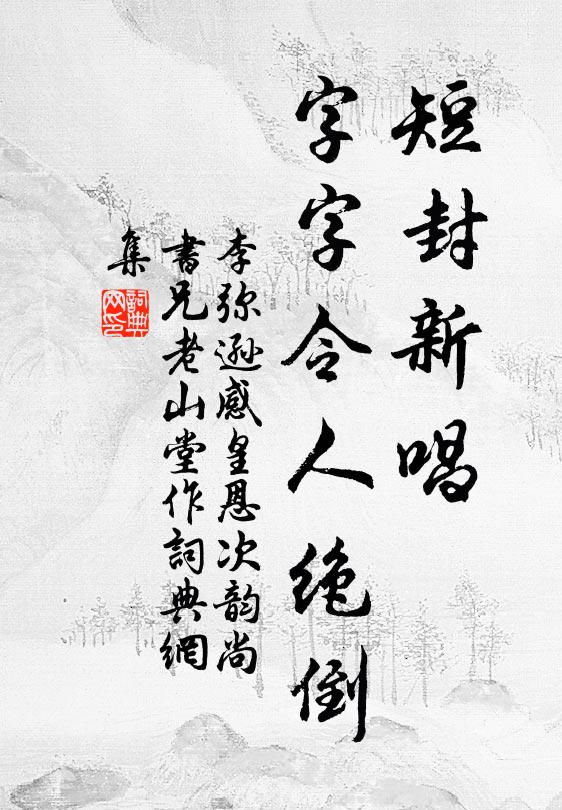 短封新唱
字字令人绝倒
李弥逊感皇恩次韵尚
書兄老山堂作詞典網
集
詞典
网印